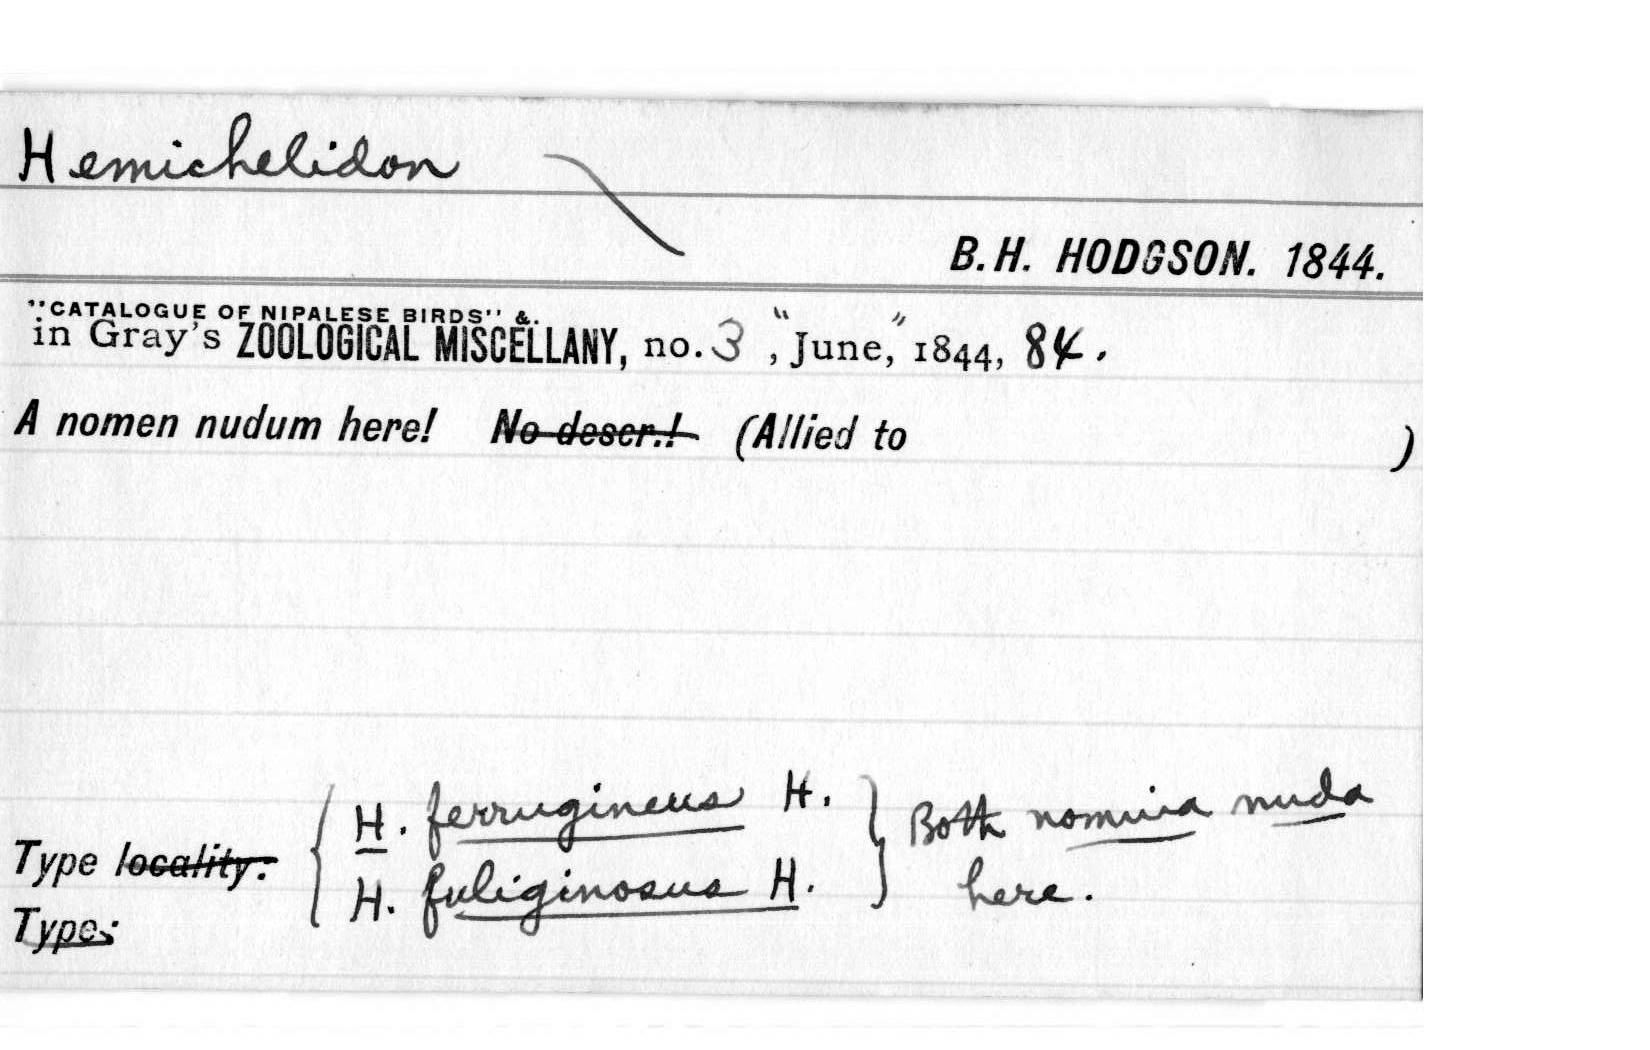 Hemichelidon
B.H. HODGSON. 1844.
"CATALOGUE OF NIPALESE BIRDS" &.
in Gray's ZOOLOGICAL MISCELLANY, no. 3, "June," 1844, 84.
A nomen nudum here! No descr.! (Allied to )
H. ferrugineus H.
Both nomina nuda
Type locality:
H. fuliginosus H.
here.
Type: